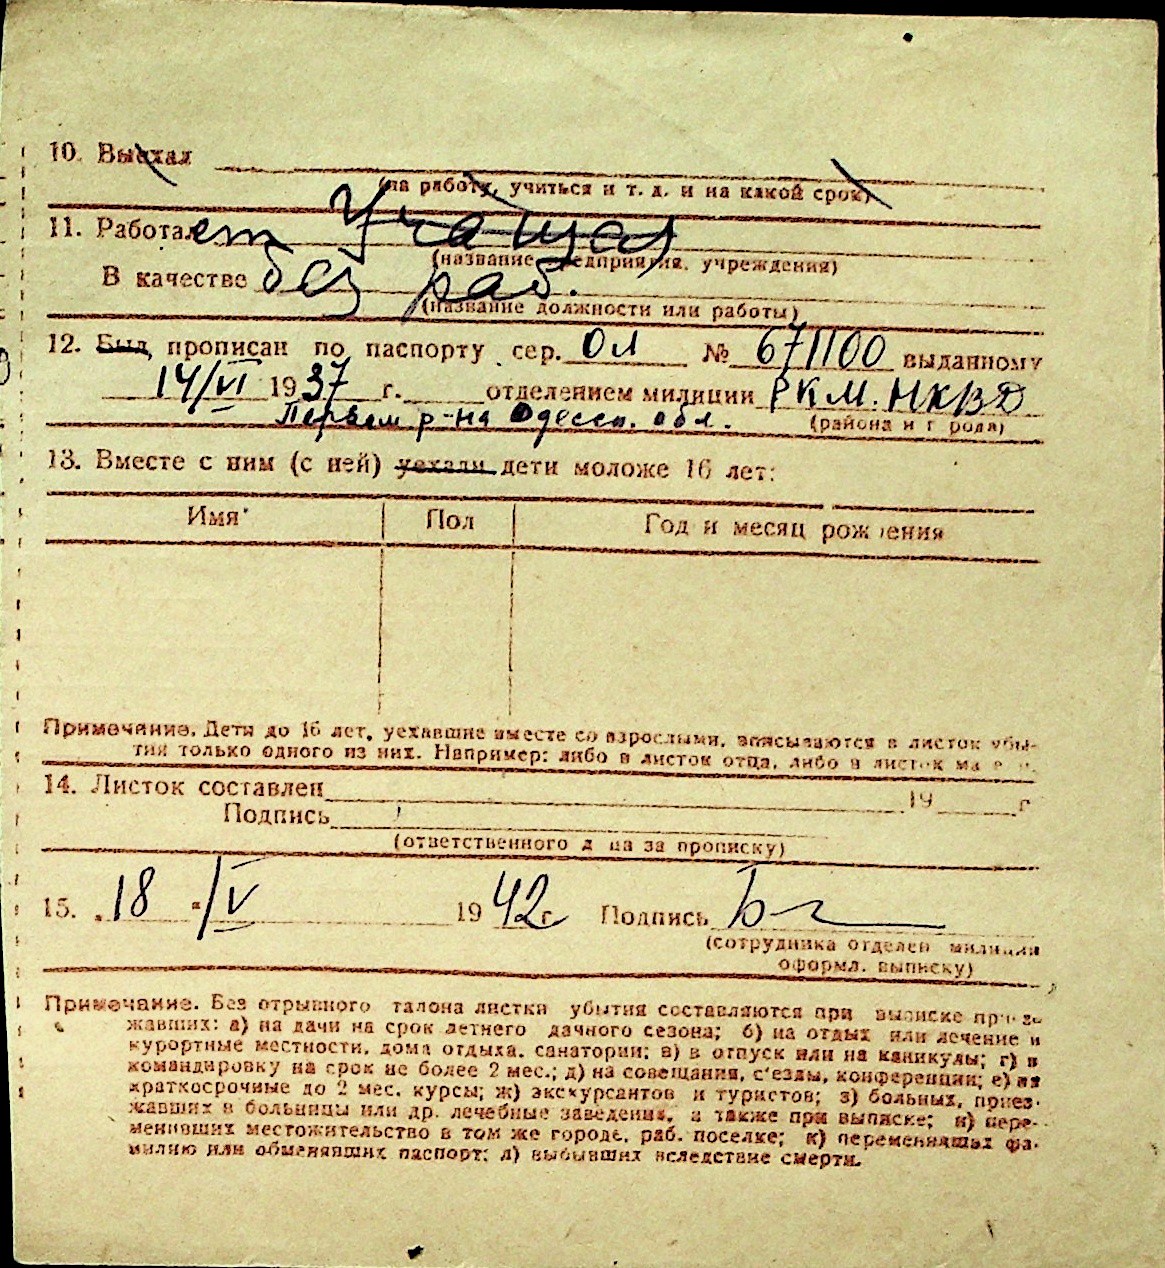 10. Выехал
(на работу, учиться и т. д. и на какой срок)
11. Работает Учащся
(название предприятия, учреждения)
В качестве без раб.
(название должности или работы)
12. Был прописан по паспорту сер. ОЛ № 671100 выданному
14/VI 1937 г. отделением милиции РКМ. НКВД
Первом р-на Одесск. обл. (района и города)
13. Вместе с ним (с ней) уехали дети моложе 16 лет:
Имя Пол Год и месяц рождения
Примечание. Дети до 16 лет, уехавшие вместе со взрослыми, вписываются в листок убы-
тия только одного из них. Например: либо в листок отца, либо в листок
14. Листок составлен 19 г
Подпись
(ответственного лица за прописку)
15. „18 “ IV 1942 г. Подпись
(сотрудника отделен милиции
оформл. выписку)
Примечание. Без отрывного талона листки убытия составляются при выписке приез-
жавших: а) на дачи на срок летнего дачного сезона; б) на отдых или лечение в
курортные местности, дома отдыха, санатории; в) в отпуск или на каникулы; г) в
командировку на срок не более 2 мес.; д) на совещания, с'езды, конференции; е) на
краткосрочные до 2 мес. курсы; ж) экскурсантов и туристов; з) больных, приез-
жавших в больницы или др. лечебные заведения, а также при выписке; и) пере-
менивших местожительство в том же городе, раб. поселке; к) переменивших фа-
милию или обменявших паспорт; л) выбывших вследствие смерти.